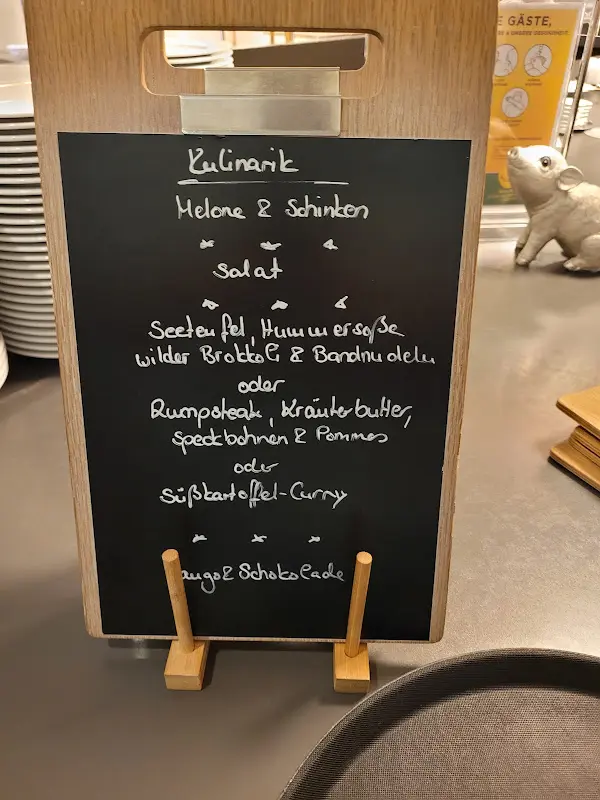 E GÄSTE,
Kulinarik
Melone & Schinken
Salat
Seeteufel, Hummersoße
wilder Brokkoli & Bandnudeln
oder
Rumpsteak, Kräuterbutter,
Speckbohnen & Pommes
oder
Süßkartoffel-Curry
ango & Schokolade